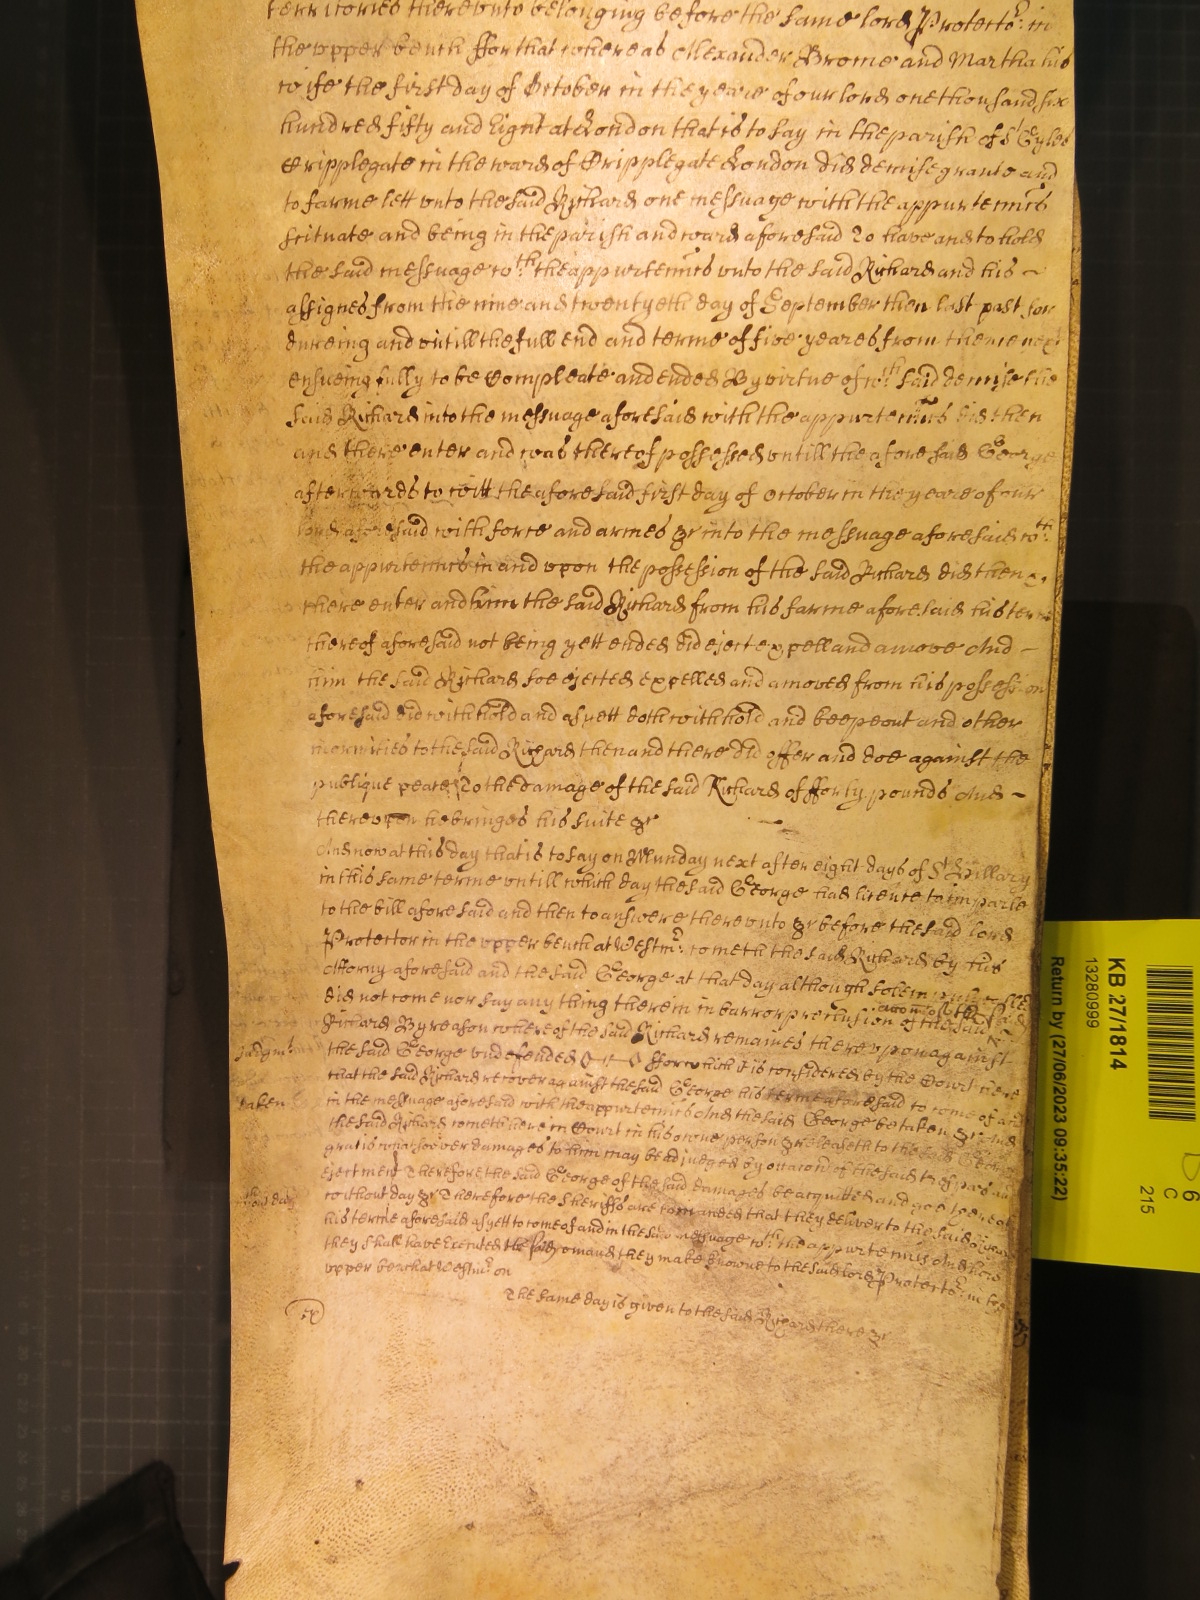 territories thereunto belonging before the same lord Protector: in
the upper bench ffor that whereas Alexander Brome and Martha his
wife the first day of October in the yeare of our lord one thousand six
hundred fifty and Eight at London that is to say in the parish of St Gyles
Cripplegate in the ward of Cripplegate London did demise graunte and
to farme lett unto the said Richard one messuage with the appurtenncs
scituate and being in the parish and ward aforesaid To have and to hold
the said messuage wth: the appurtenncs unto the said Richard and his ~
assignes from the nine and twentyeth day of September then last past for
dureing and untill the full end and terme of five yeares from thence next
ensueing fully to be Compleate and ended By virtue of wch: said demise the
said Richard into the messuage aforesaid with the appurtenncs did then
and there enter and was thereof possessed untill the aforesaid George
afterwards to witt the aforesaid first day of October in the yeare of our
lord aforesaid with force and armes &c into the messuage aforesaid wth:
the appurtenncs in and upon the possession of the said Richard did then &
there enter and him the said Richard from his farme aforesaid his terme
thereof aforesaid not being yett ended did eject expell and amove And ~
him the said Richard soe ejected expelled and amoved from his possession
aforesaid did withhold and as yett doth withhold and keepe out and other
enormities to the said Richard then and there did offer and doe against the
publique peace To the damage of the said Richard of fforty pounds And ~
thereupon he bringes his suite &c
And now at this day that is to say on Munday next after eight days of St Hillary
in this same terme untill which day the said George had licence to imparle
to the bill aforesaid and then to answere thereunto &c before the said lord
Protector in the upper bench at Westmr: cometh the said Richard by his
Attorny aforesaid and the said George at that day although solemnly called
did not come nor say any thing therein in barr or preclusion of the said
Richard By reason whereof the said Richard remaines thereupon against
Judgmt
the said George undefended ffor which it is considered by the Court here
that the said Richard recover against the said George his terme aforesaid to come of and
taken
in the messuage aforesaid with the appurtenncs And the said George be taken &c And
the said Richard cometh here in Court in his owne person & releaseth to the said George
gratis whatsoever damages to him may be adjudged by occacon of the said trespas and
ejectment Therefore the said George of the said damages be acquitted and goe thereof
without day
without day &c Therefore the Sheriffs are comanded that they deliver to the said Richard
his terme aforesaid as yett to come of and in the said messuage wth: the appurtenncs And how
they shall have Executed the said comaund they make knowne to the said lord Protector: in the
upper bench at Westmr: on
The same day is given to the said Richard there &c
KB 27/1814
13280999
Return by (27/06/2023 09:35:22)
D 6
C
215